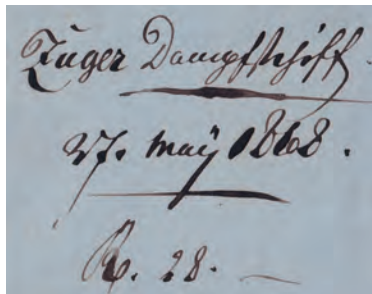 Zuger Dampfschiff.
27. maÿ 1868.
Rp. 28.